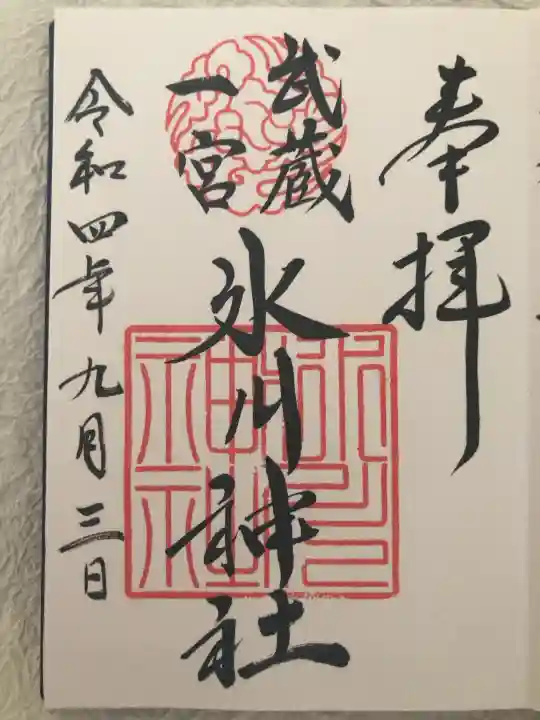 奉拝
武蔵
一宮
氷川神社
氷川
神社
令和四年九月三日